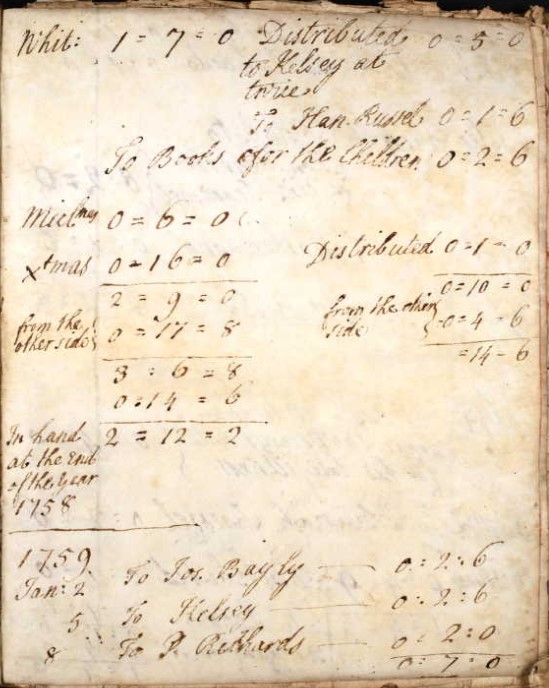 Whit: 1 = 7 = 0 Distributed 0 = 5 = 0
to Kelsey at
twice
To Han. Russel 0 = 1 = 6
To Books for the Children 0 = 2 = 6
Michms 0 = 6 = 0
Xtmas 0 = 16 = 0 Distributed 0 = 1 = 0
2 = 9 = 0 0 = 10 = 0
from the other side 0 = 17 = 8 from the other side 0 = 4 = 6
3 : 6 = 8 = 14 = 6
0 = 14 = 6
In hand 2 = 12 = 2
at the End
of the Year
1758
1759
Jan: 2 To Jos. Bayly 0 : 2 : 6
5 To Kelsey 0 : 2 : 6
8 To P. Richards 0 : 2 : 0
0 : 7 : 0